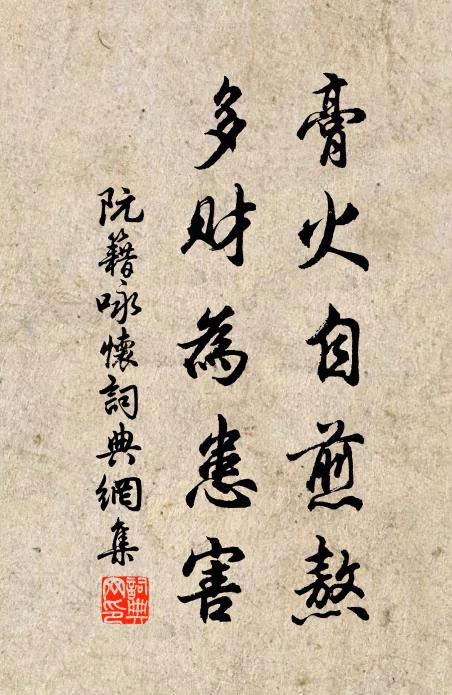 膏火自煎熬
多財為患害
阮籍咏懷詞典網集
詞典網印